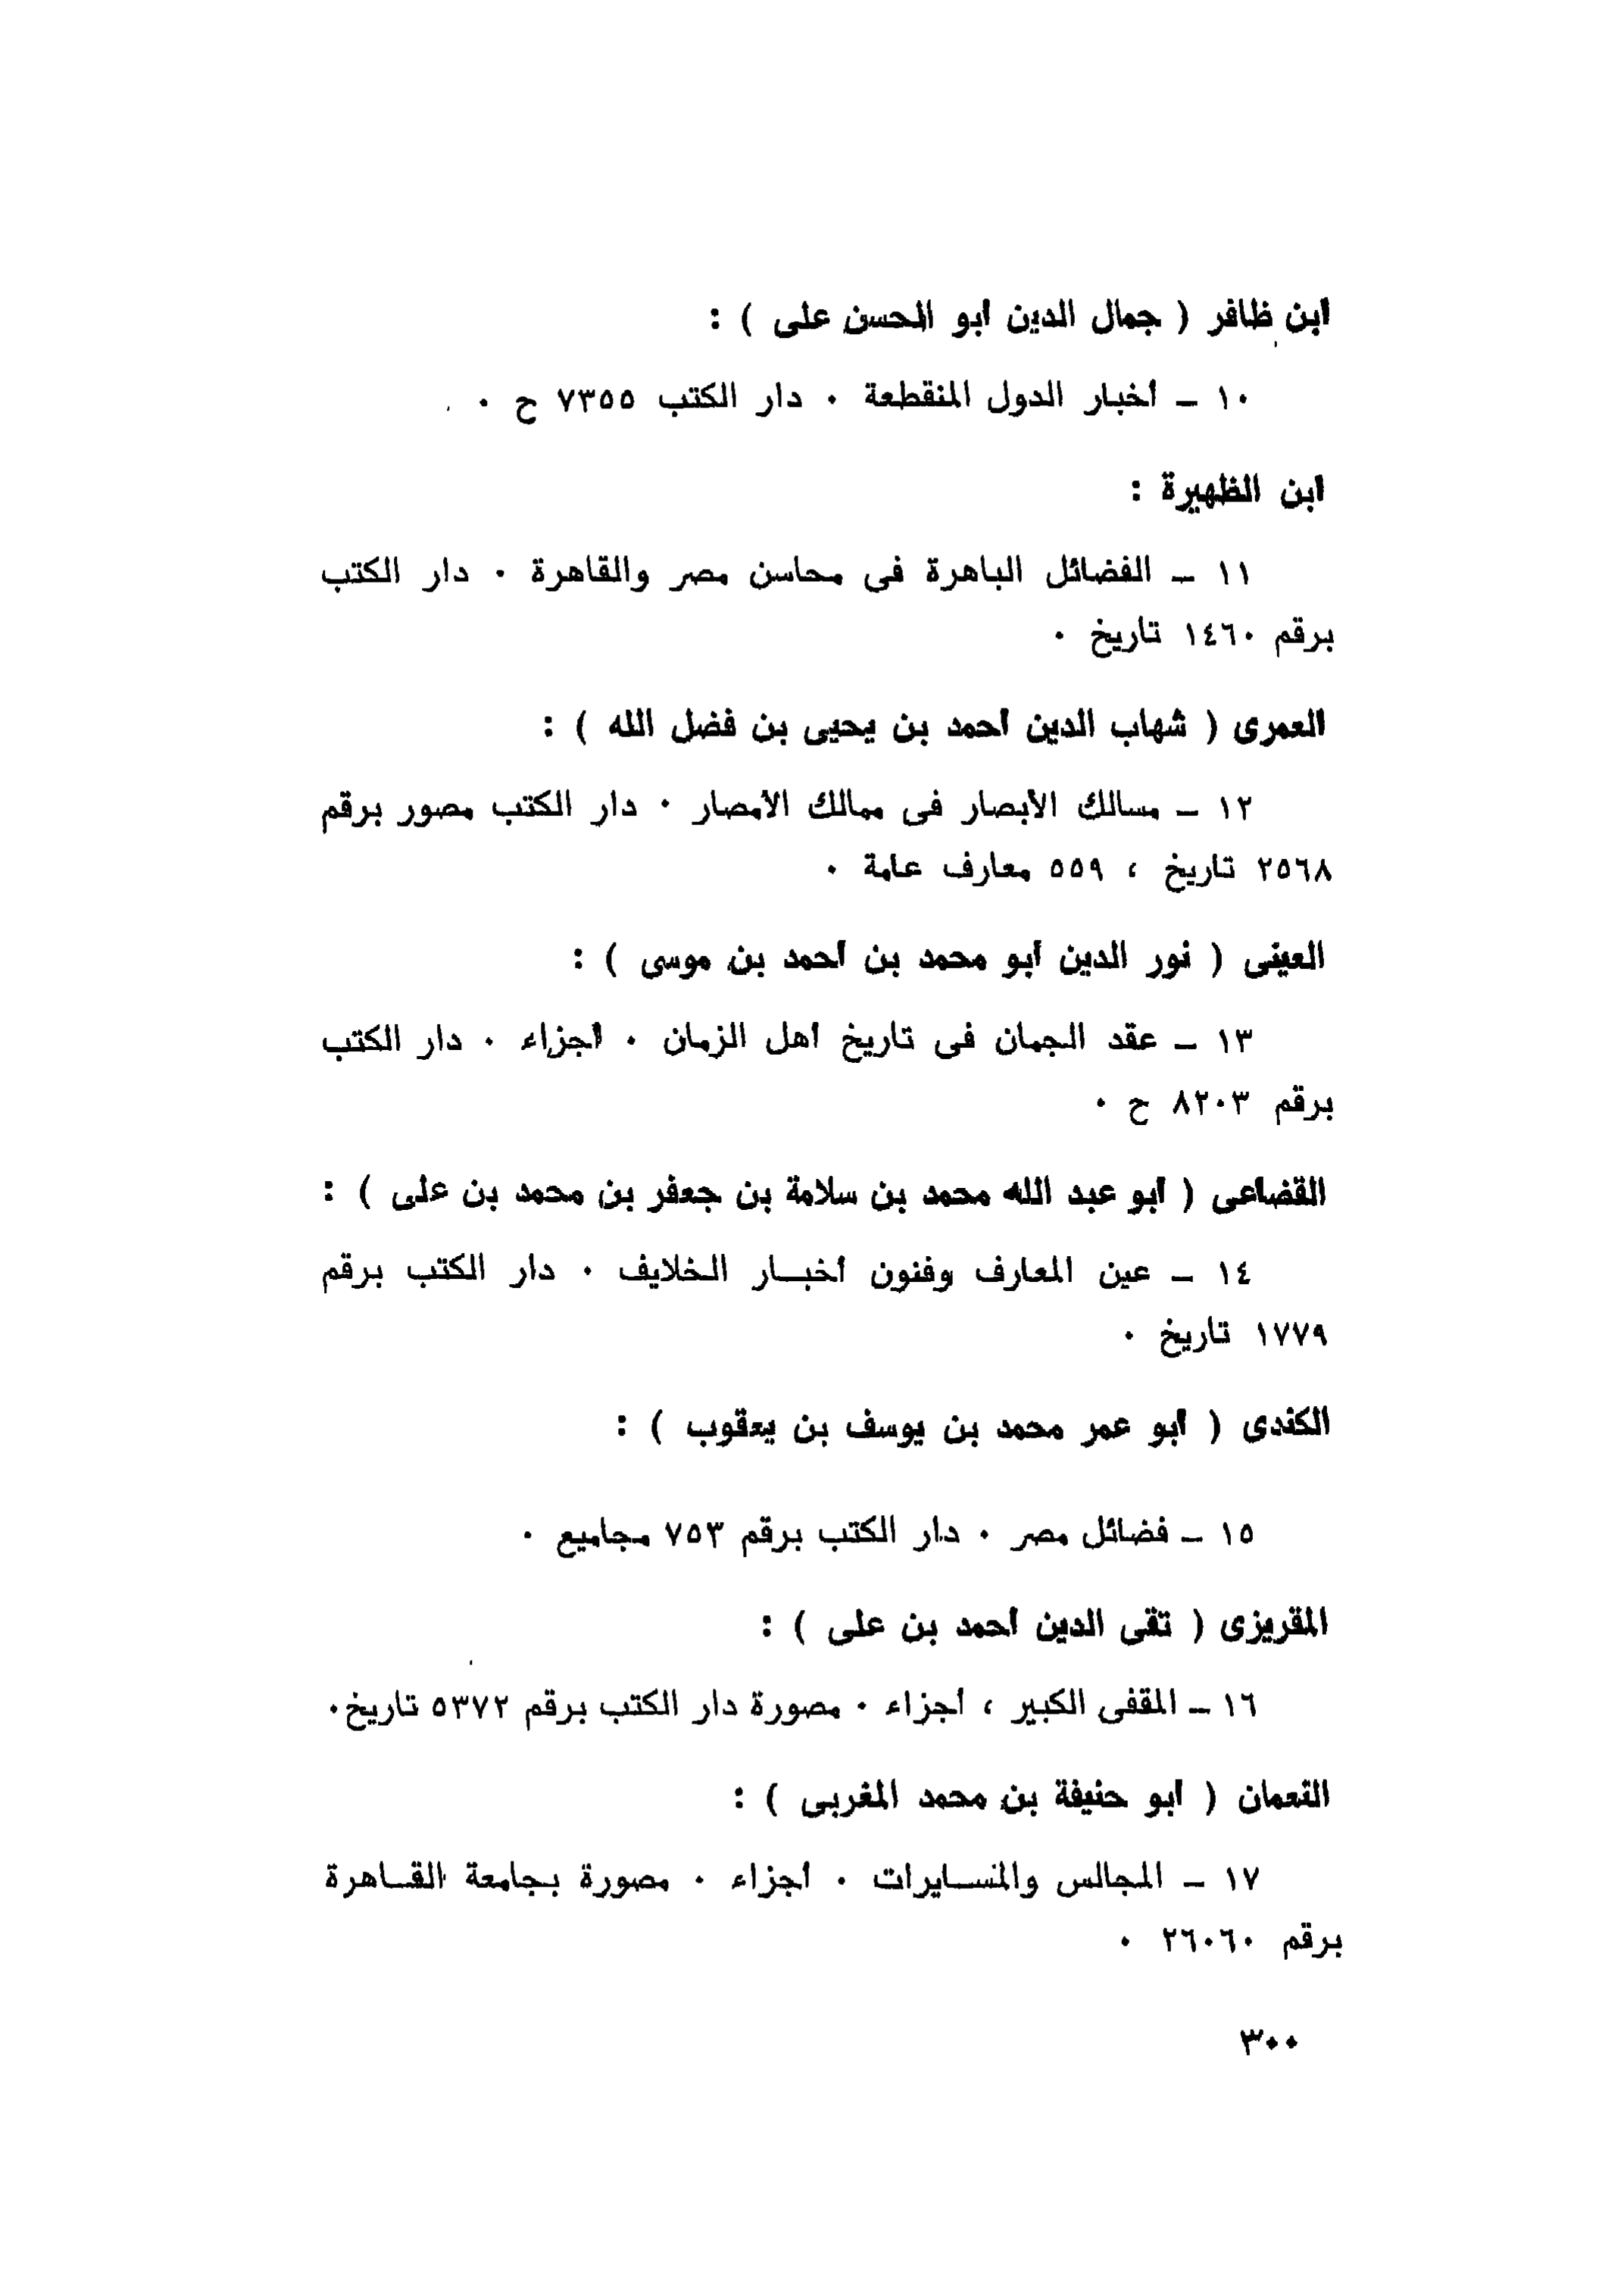 ابن ظافر ( جمال الدين أبو الحسن على ) :
١٠ – أخبار الدول المنقطعة ٠ دار الكتب ٧٣٥٥ ح ٠
ابن الظهيرة :
١١ – الفضائل الباهرة فى محاسن مصر والقاهرة ٠ دار الكتب
برقم ١٤٦٠ تاريخ ٠
العمرى ( شهاب الدين أحمد بن يحيى بن فضل الله ) :
١٢ – مسالك الأبصار فى ممالك الأمصار ٠ دار الكتب مصور برقم
٢٥٦٨ تاريخ ، ٥٥٩ معارف عامة ٠
العينى ( نور الدين أبو محمد بن أحمد بن موسى ) :
١٣ – عقد الجمان فى تاريخ أهل الزمان ٠ أجزاء ٠ دار الكتب
برقم ٨٢٠٣ ح ٠
القضاعى ( أبو عبد الله محمد بن سلامة بن جعفر بن محمد بن على ) :
١٤ – عين المعارف وفنون أخبــار الخلايف ٠ دار الكتب برقم
١٧٧٩ تاريخ ٠
الكندى ( أبو عمر محمد بن يوسف بن يعقوب ) :
١٥ – فضائل مصر ٠ دار الكتب برقم ٧٥٣ مجاميع ٠
المقريزى ( تقى الدين أحمد بن على ) :
١٦ – المقفى الكبير ، أجزاء ٠ مصورة دار الكتب برقم ٥٣٧٢ تاريخ٠
النعمان ( أبو حنيفة بن محمد المغربى ) :
١٧ – المجالس والمســايرات ٠ أجزاء ٠ مصورة بجامعة القــاهرة
برقم ٢٦٠٦٠ ٠
٣٠٠